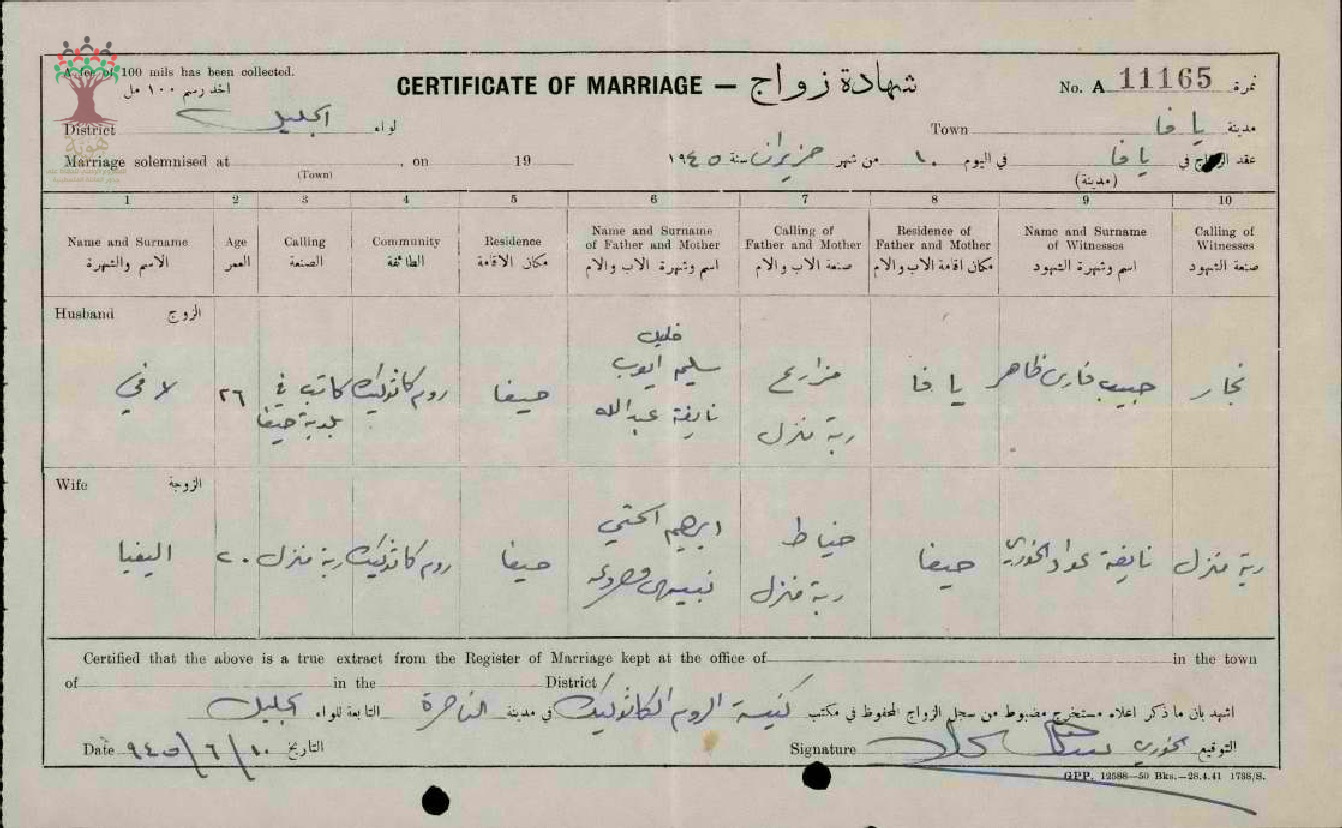 A fee of 100 mils has been collected.
اخذ رسم ١٠٠ مل
CERTIFICATE OF MARRIAGE — شهادة زواج
No. A 11165 نمرة
District الجليل لواء
Town يافا مدينة
Marriage solemnised at , on 19
(Town)
عقد الزواج في يافا في اليوم ١٠ من شهر حزيران سنة ١٩٤٥
(مدينة)
1 2 3 4 5 6 7 8 9 10
Name and Surname الاسم والشهرة
Age العمر
Calling الصنعة
Community الطائفة
Residence مكان الاقامة
Name and Surname of Father and Mother اسم وشهرة الاب والام
Calling of Father and Mother صنعة الاب والام
Residence of Father and Mother مكان اقامة الاب والام
Name and Surname of Witnesses اسم وشهرة الشهود
Calling of Witnesses صنعة الشهود
Husband الزوج
لافي
٢٦
كاتب في
بلدية حيفا
روم كاثوليك
حيفا
خليل
سليم ايوب
نايفة عبدالله
مزارع
ربة منزل
يافا
حبيب فارس ظاهر
نجار
Wife الزوجة
اليفيا
٢٠
ربة منزل
روم كاثوليك
حيفا
ابرهيم
خياط
ربة منزل
حيفا
نايفة عواد الخوري
ربة منزل
Certified that the above is a true extract from the Register of Marriage kept at the office of in the town
of in the District
اشهد بان ما ذكر اعلاه مستخرج مضبوط من سجل الزواج المحفوظ في مكتب كنيسة الروم الكاثوليك في مدينة الناصرة التابعة للواء الجليل
Date ٩٤٥/٦/١٠ التاريخ
Signature الخوري التوقيع
GPP. 12588—50 Bks.—28.4.41 1738/S.